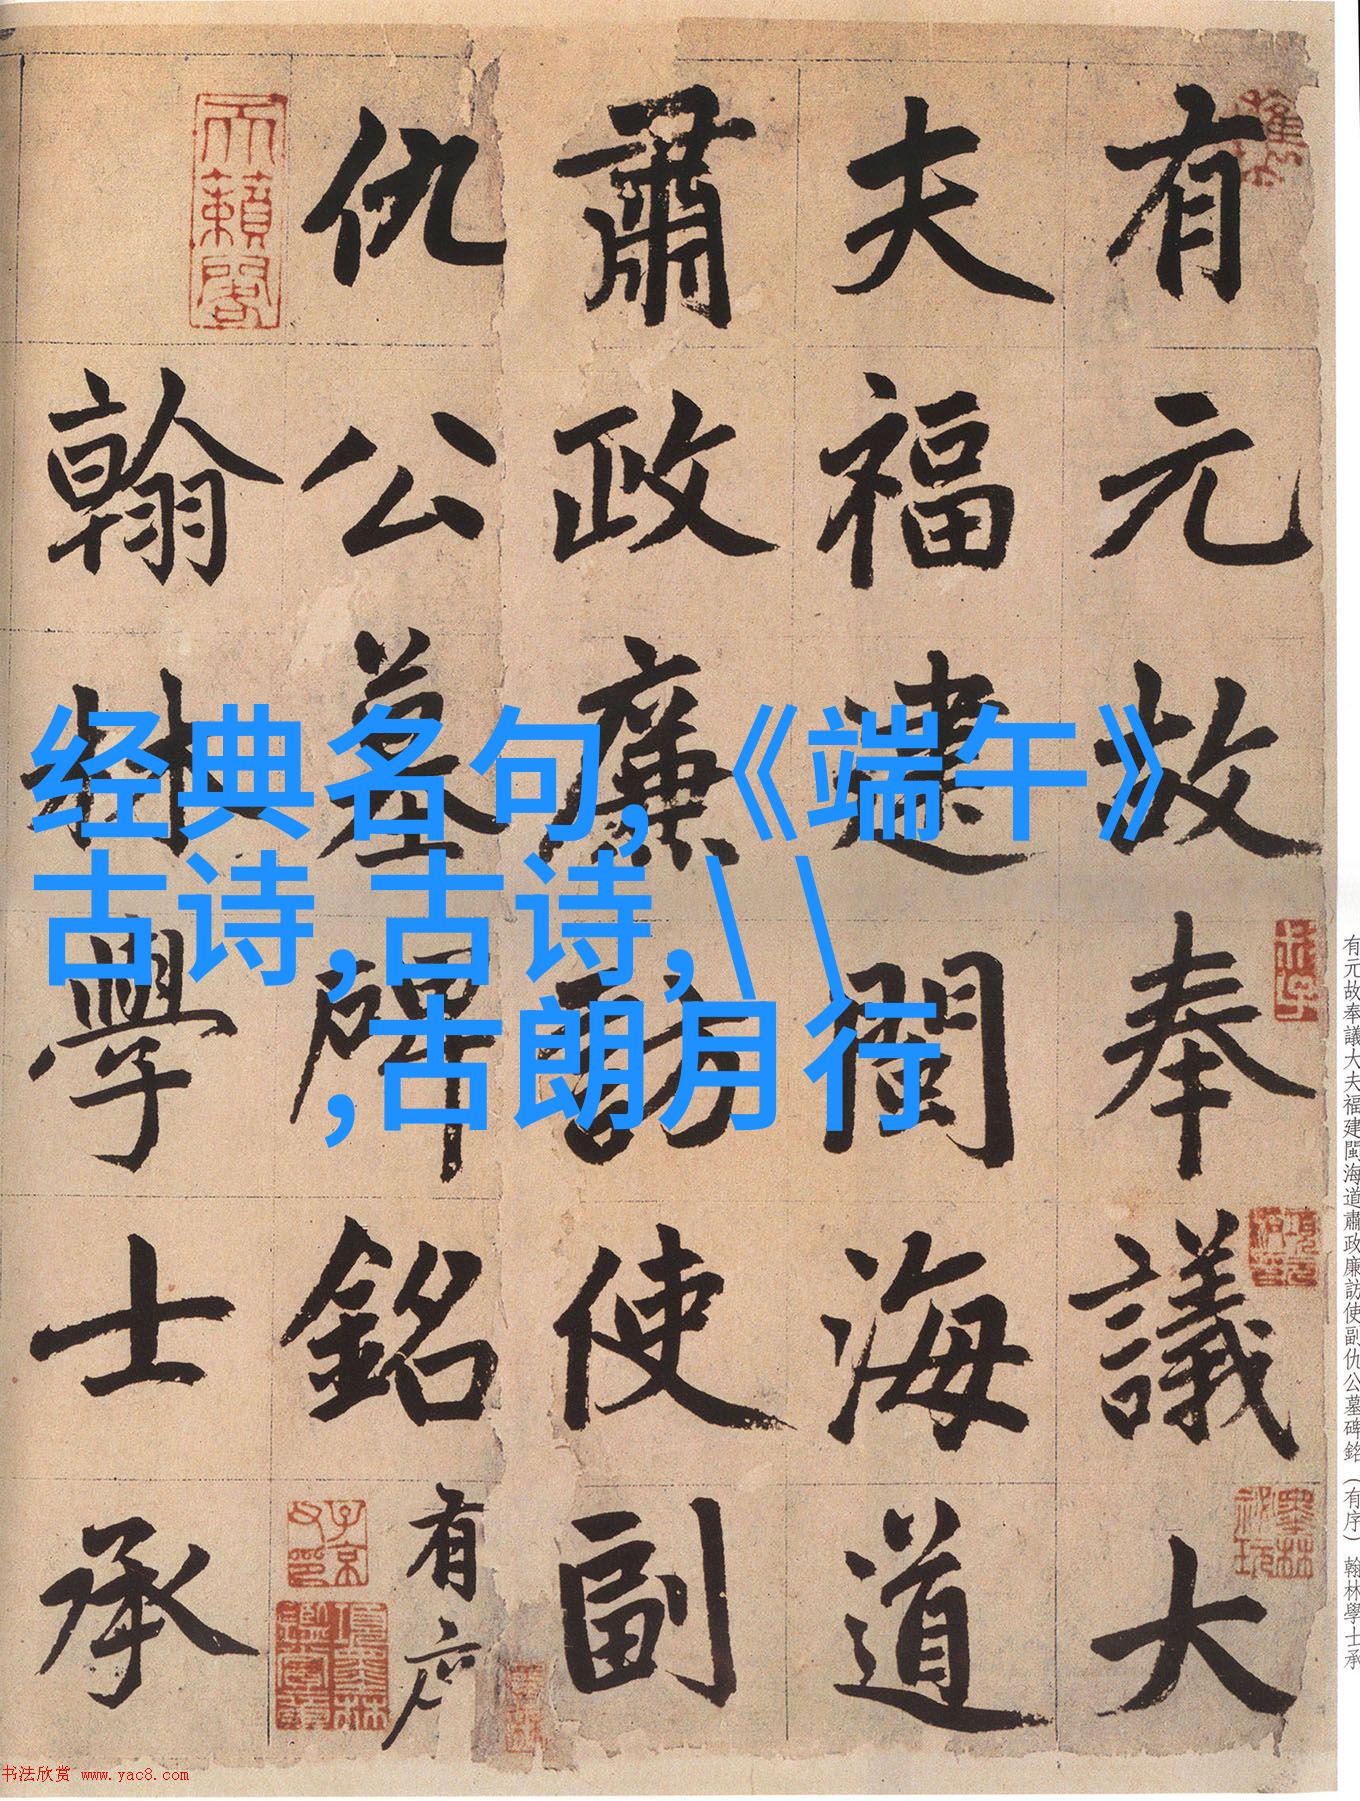 有元故奉議大
夫福建閩海道
肅政廉訪使副
仇公墓碑銘有序
翰林學士承
天籟閣
经典名句,《端午》
古诗,古诗,\ \
,古朗月行
有元故奉議大夫福建閩海道肅政廉訪使副仇公墓碑銘（有序）翰林學士承
书法欣赏 www.yac8.com